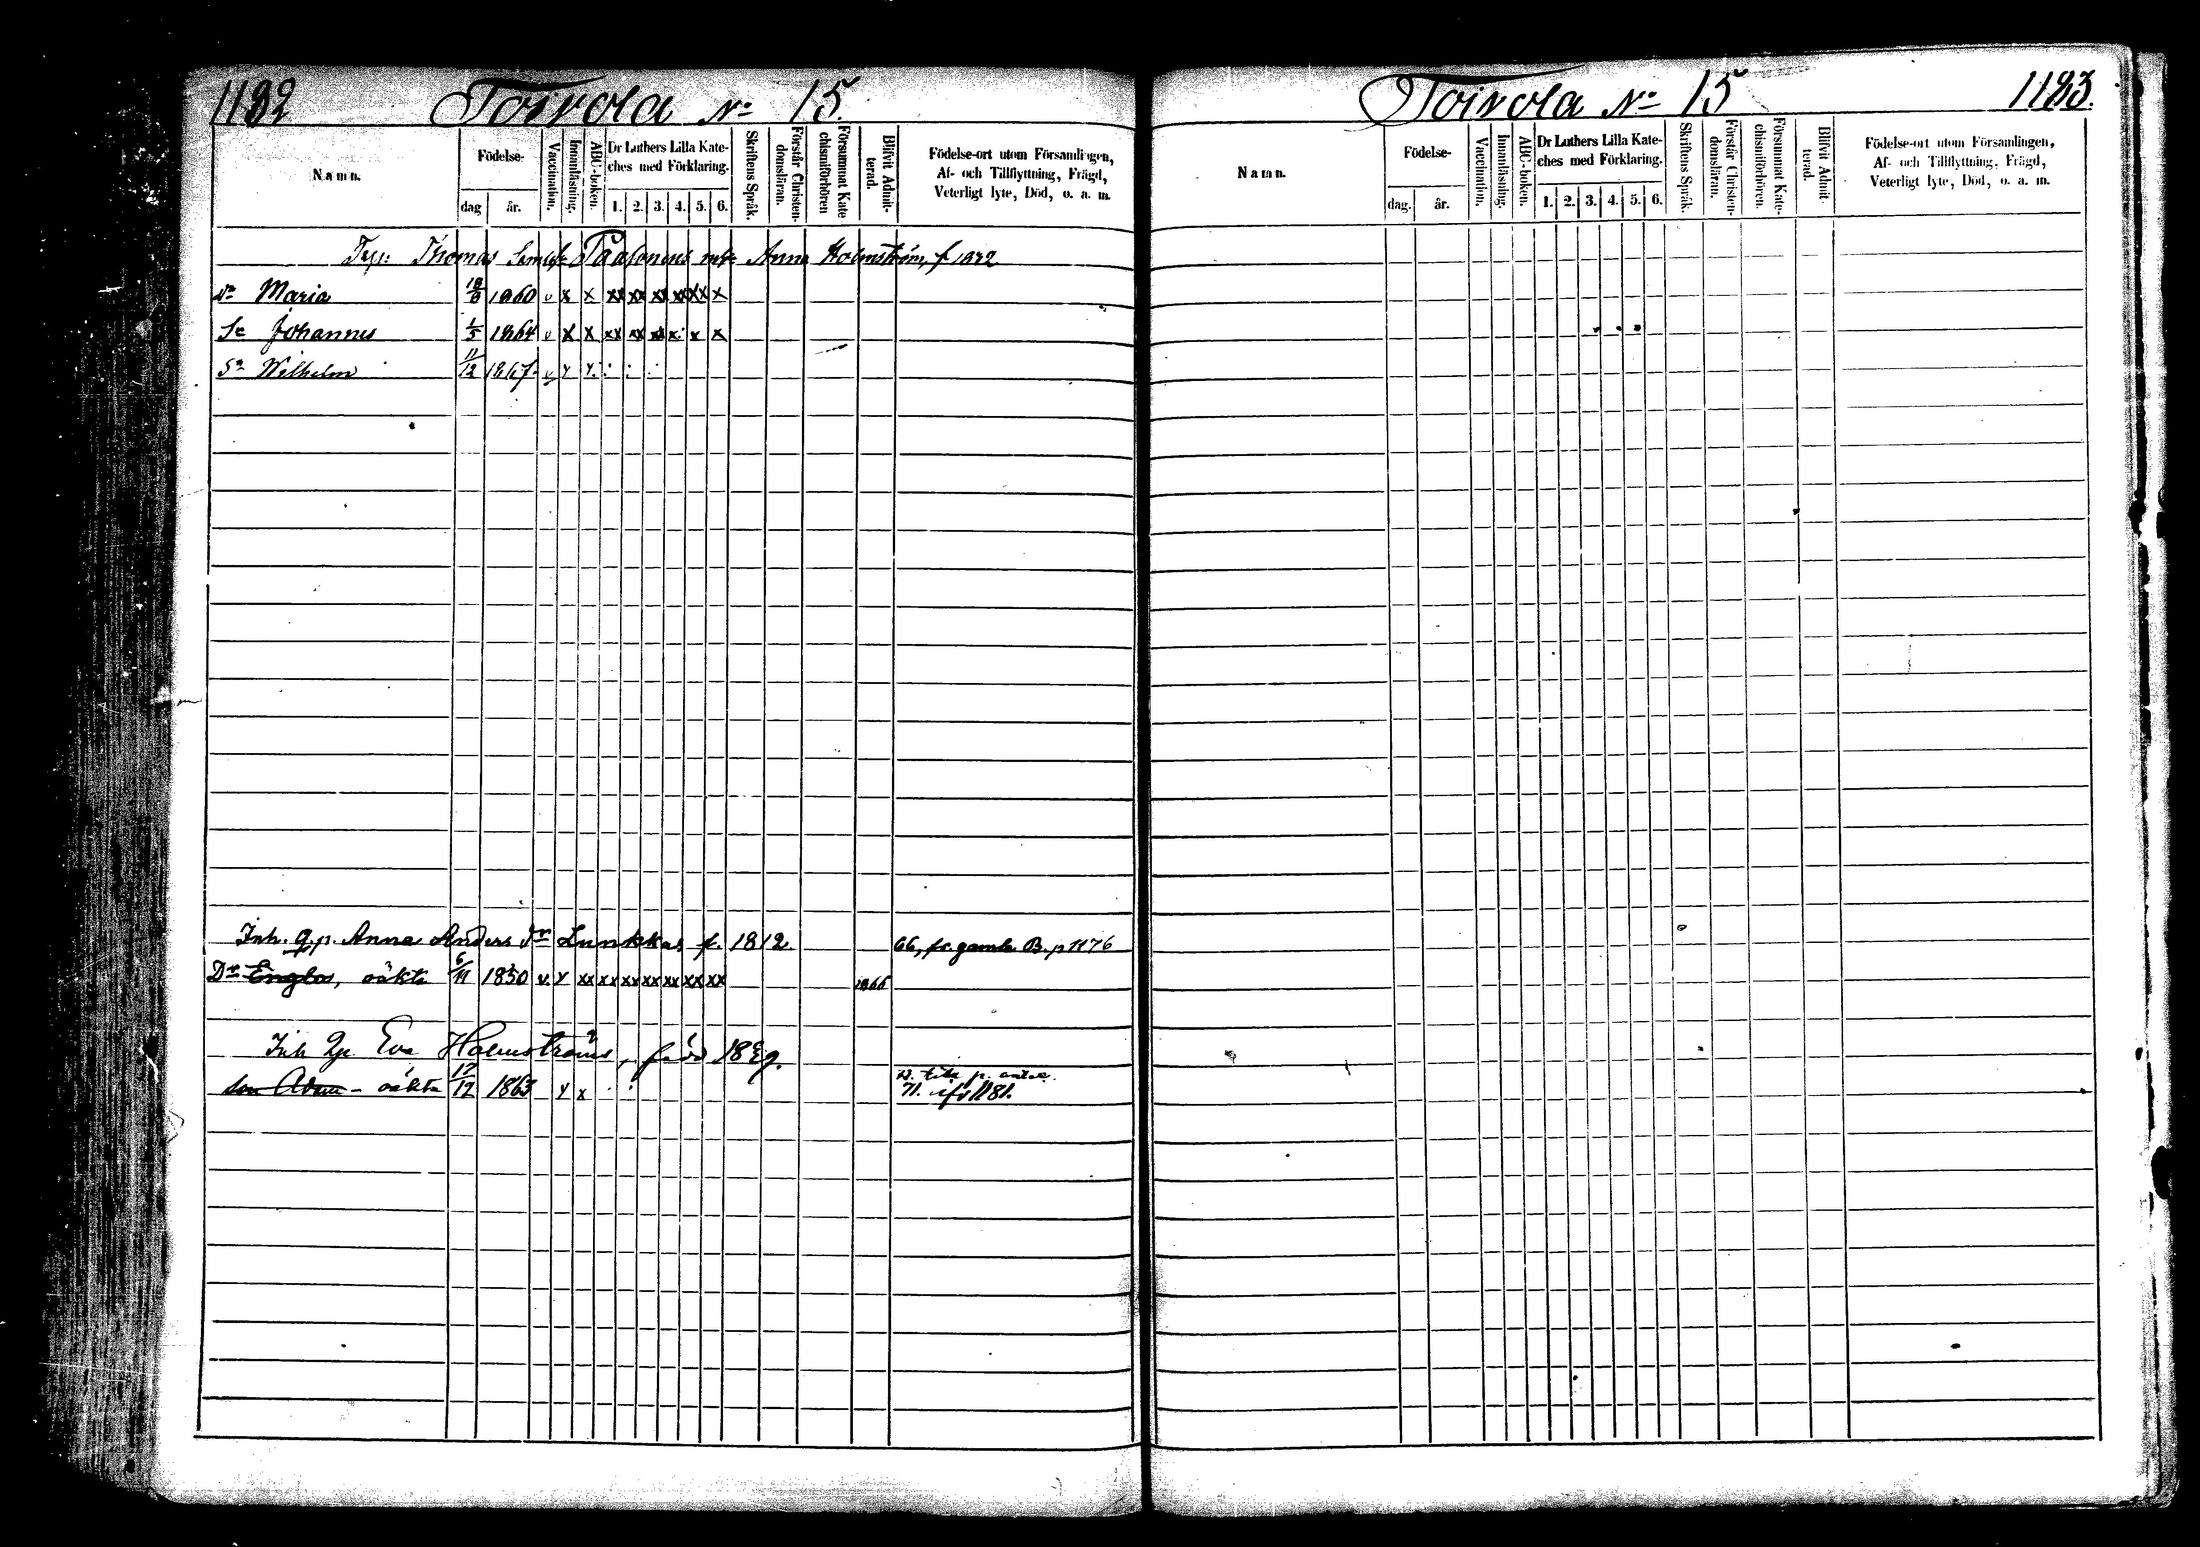 1182 Toivola No 15.
Namn. Födelse- dag år. Vaccination. Innanläsning. ABC-boken. Dr Luthers Lilla Kate-ches med Förklaring. 1. 2. 3. 4. 5. 6. Skriftens Språk. Förstår Christen-domsläran. Försummat Kate chismiförhören Blifvit Admit-terad. Födelse-ort utom Församlingen, Af- och Tillflyttning, Frägd, Veterligt lyte, Död, o. a. m.
Thomas Paasonens Anna Holmström, f 1832
Dr Maria 1860 v x x xx xx xx xx xx x
Sn Johannes 1/5 1864 v x x xx xx x x x
Sn Wilhelm 11/12 1867 v x x
Inh. q.p. Anna Anders dr Lunkkas f. 1812. 66, fr. gamla B. p 1176
Dr Engla, oäkta 6/11 1850 v. x xx xx xx xx xx xx xx 1866
Inh Qp. Eva Holmström, född 18
son Adam - oäkta 17/12 1863 x x 71. 1181.
Toivola No 15 1183.
Namn. Födelse- dag. år. Vaccination. Innanläsning. ABC-boken. Dr Luthers Lilla Kate-ches med Förklaring. 1. 2. 3. 4. 5. 6. Skriftens Språk. Förstår Christen-domsläran. Försummat Kate-chismiförhören. Blifvit Admit-terad. Födelse-ort utom Församlingen, Af- och Tillflyttning, Frägd, Veterligt lyte, Död, o. a. m.